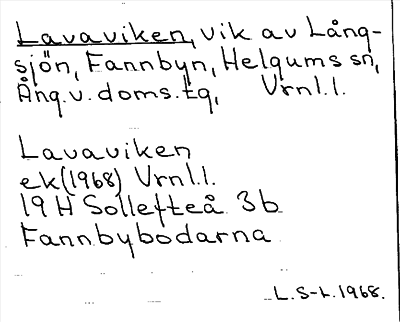 Lavaviken, vik av Lång-
sjön, Fannbyn, Helgums sn,
Ång.v.doms.tg, Vrnl.l.
Lavaviken
ek(1968) Vrnl.l.
19 H Sollefteå 3b
Fannbybodarna
L.S-t.1968.